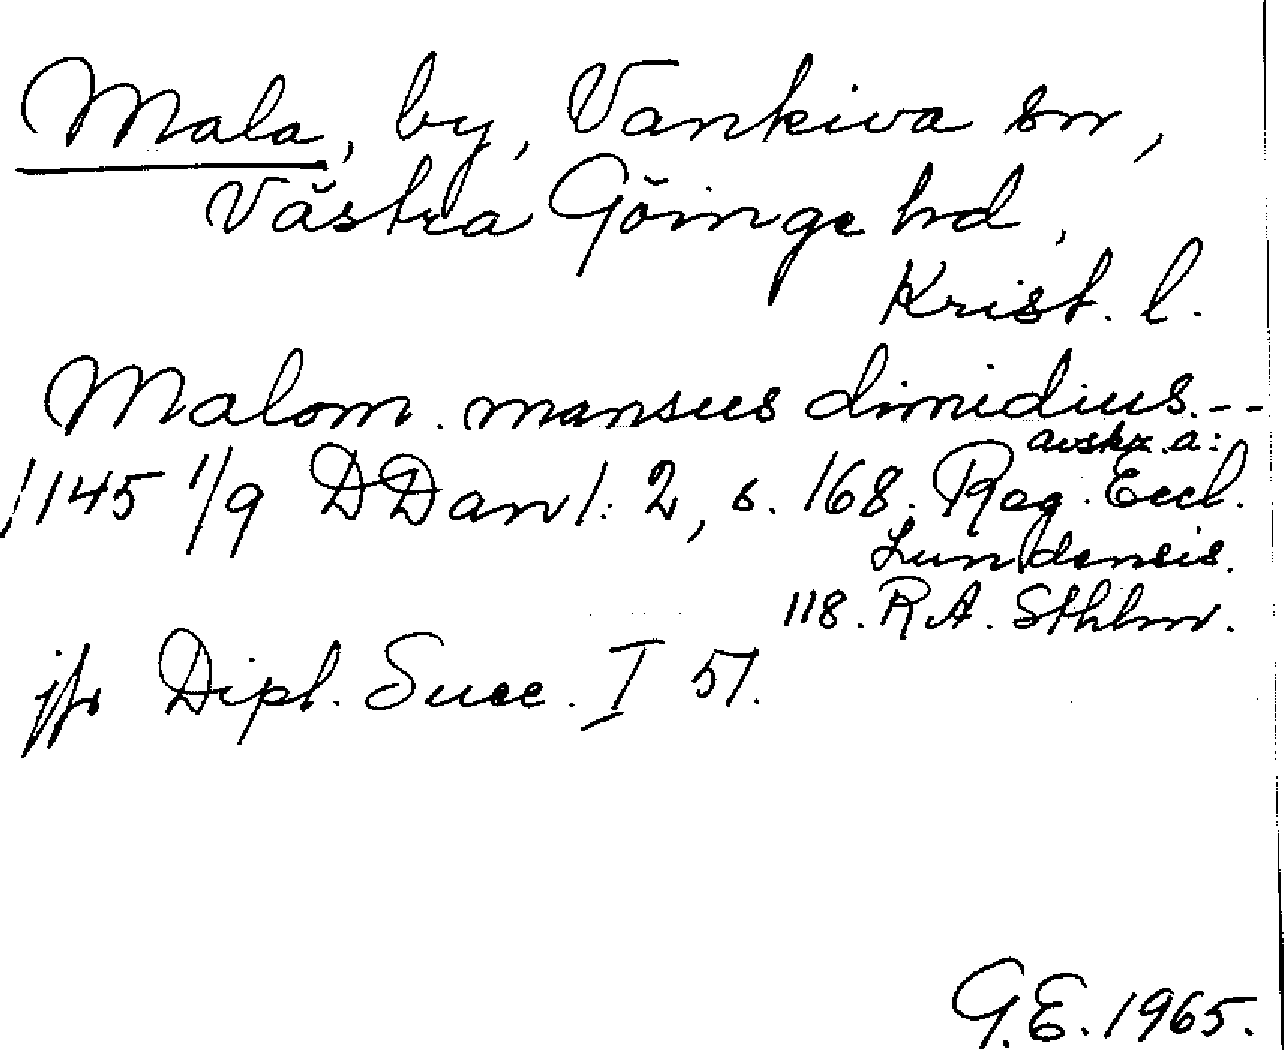 Mala, by, Vankiva sn,
Västra Göinge hd,
Krist. l.
Malom. mansus dimidius. --
avskr. a:
1145 1/9 DDan 1: 2, s. 168. Reg. Eccl.
Lundensis.
118. RA. Sthlm.
jfr Dipl. Suec. I 51.
G.E. 1965.